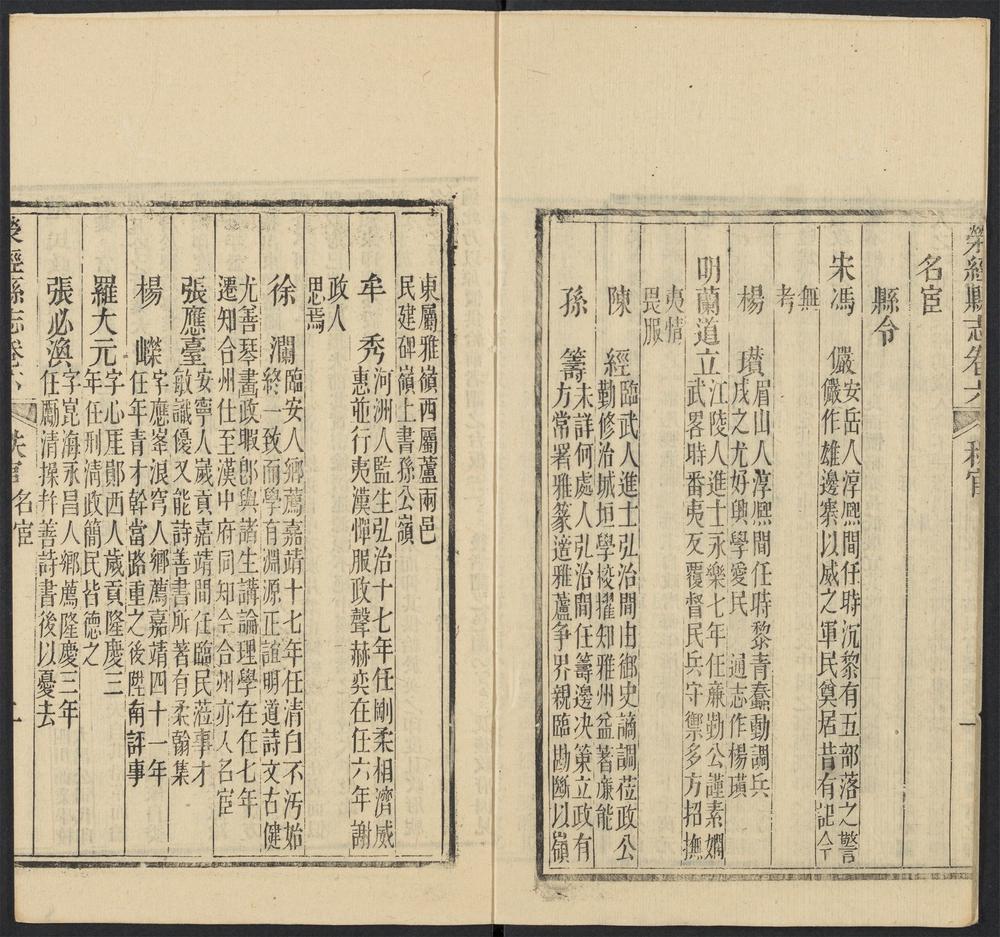 滎經縣志卷六
秩官
一
名宦
縣令
宋馮　儼安岳人淳熈間任時沉黎有五部落之警
儼作雄邊寨以威之軍民奠居昔有記今
無
考
楊　瓚眉山人淳熈間任時黎青蠢動調兵
戍之尤好興學愛民　通志作楊璜
明蘭道立江陵人進士永樂七年任亷勤公謹素嫻
武畧時番夷反覆督民兵守禦多方招撫
夷情
畏服
陳　經臨武人進士弘治間由御史謫調莅政公
勤修治城垣學校擢知雅州益著亷能
孫　籌未詳何處人弘治間任籌邊决策立政有
方常署雅篆適雅蘆爭界親臨勘斷以嶺
東屬雅嶺西屬蘆兩邑
民建碑嶺上書孫公嶺
牟　秀河洲人監生弘治十七年任剛柔相濟威
惠並行夷漢憚服政聲赫奕在任六年謝
政人
思焉
徐　瀾臨安人鄉薦嘉靖十七年任清白不汚始
終一致而學有淵源正誼明道詩文古健
尤善琴畫政暇即與諸生講論理學在任七年
遷知合州仕至漢中府同知今合州亦入名宦
張應臺安寧人嵗貢嘉靖間任臨民蒞事才
敏識優又能詩善書所著有柔翰集
楊　嶸字應峯浪穹人鄉薦嘉靖四十一年
任年青才幹當路重之後陞南評事
羅大元字心厓鄖西人歲貢隆慶三
年任刑清政簡民皆德之
張必渙字崑海永昌人鄉薦隆慶三年
任勵清操幷善詩書後以憂去
滎經縣志卷六
秩官　名宦
二